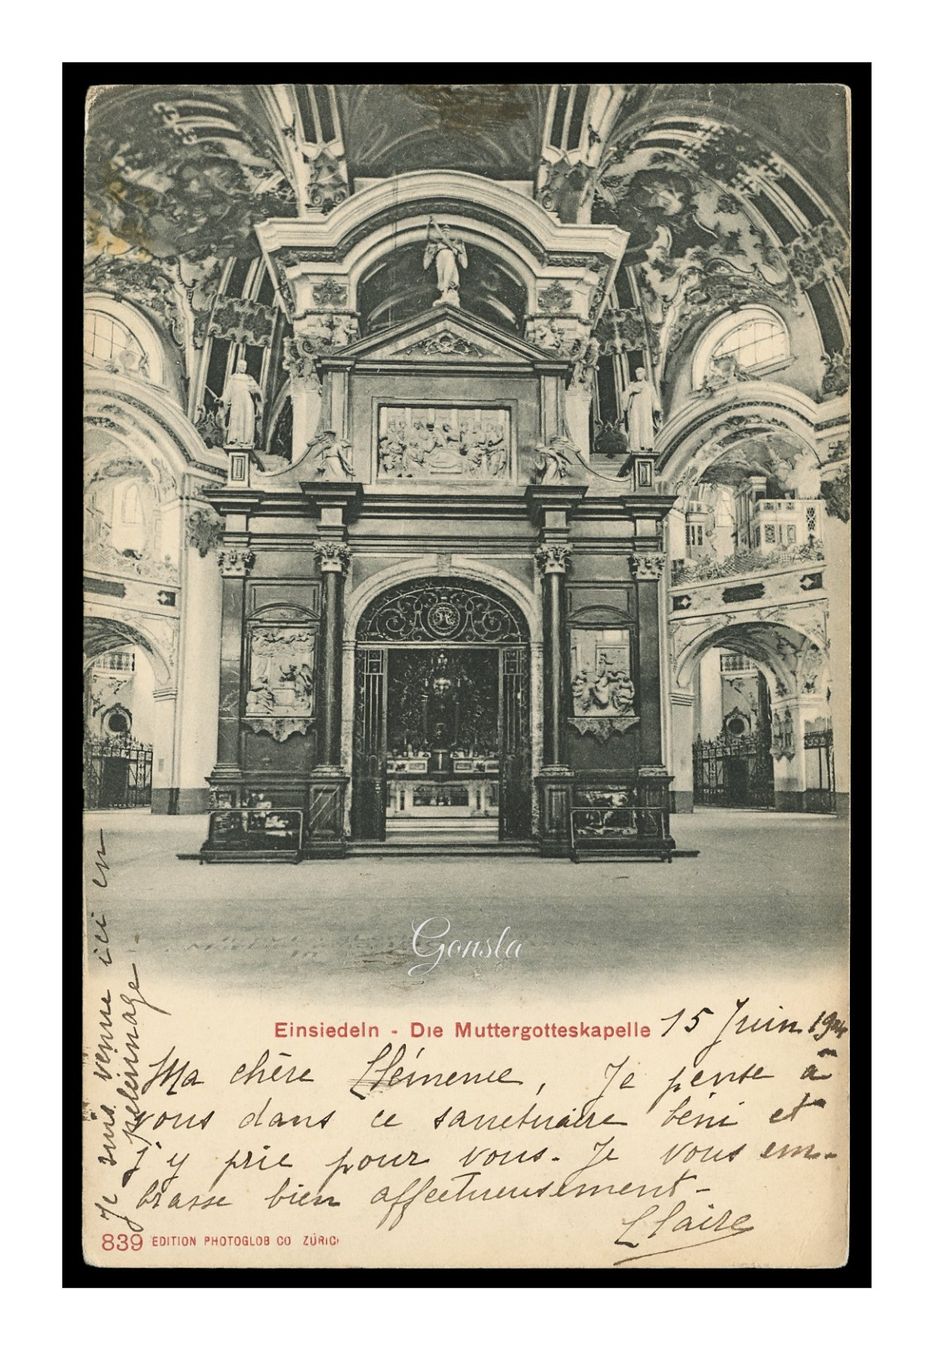 Gonsla
Einsiedeln - Die Muttergotteskapelle
15 Juin
Ma chère Clémence, Je pense à
vous dans ce sanctuaire béni et
j'y prie pour vous. Je vous em-
brasse bien affectueusement -
Claire
Je suis venue ici en
pélerinage
839 EDITION PHOTOGLOB CO ZÜRICH